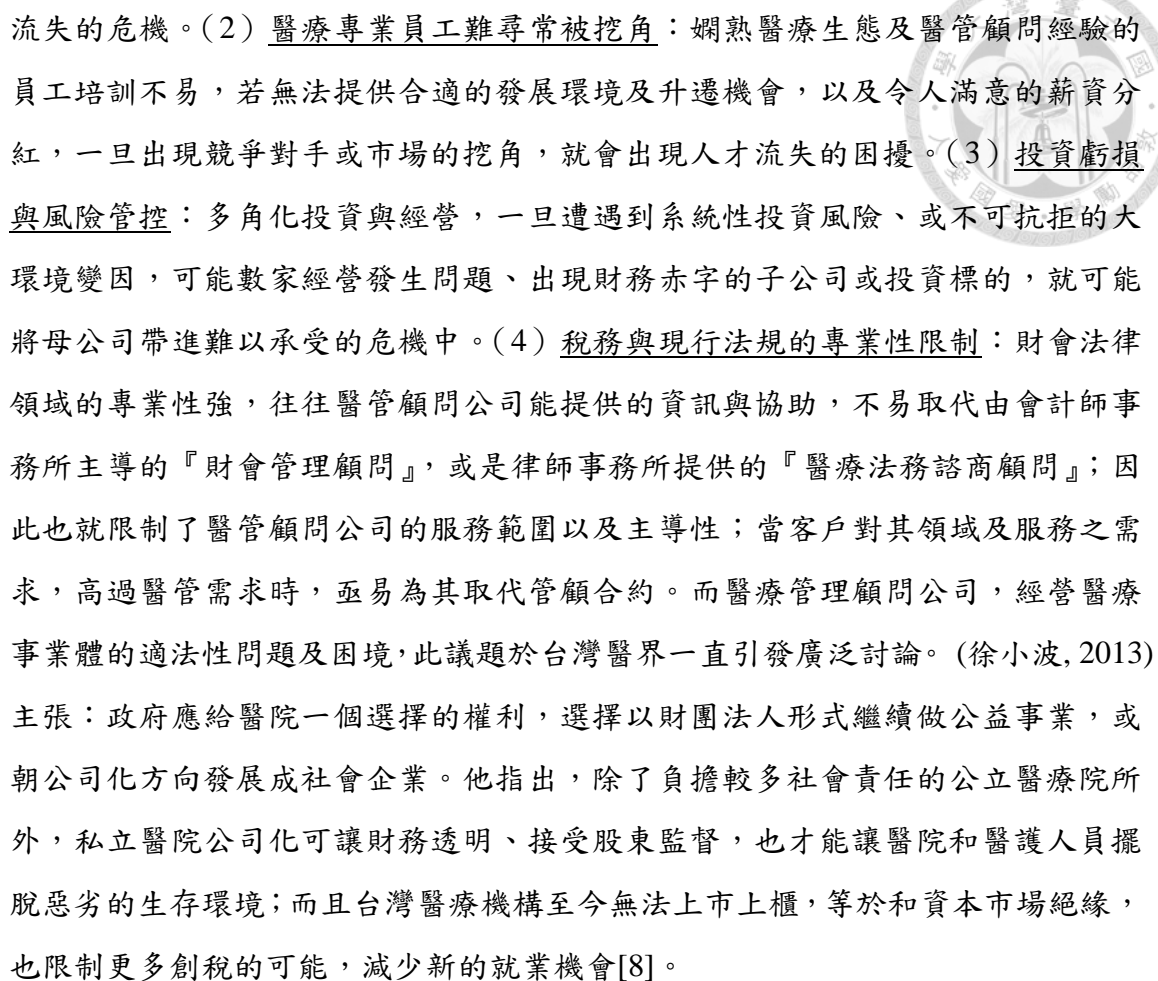 流失的危機。(2) 醫療專業員工難尋常被挖角：嫻熟醫療生態及醫管顧問經驗的
員工培訓不易，若無法提供合適的發展環境及升遷機會，以及令人滿意的薪資分
紅，一旦出現競爭對手或市場的挖角，就會出現人才流失的困擾。(3) 投資虧損
與風險管控：多角化投資與經營，一旦遭遇到系統性投資風險、或不可抗拒的大
環境變因，可能數家經營發生問題、出現財務赤字的子公司或投資標的，就可能
將母公司帶進難以承受的危機中。(4) 稅務與現行法規的專業性限制：財會法律
領域的專業性強，往往醫管顧問公司能提供的資訊與協助，不易取代由會計師事
務所主導的『財會管理顧問』，或是律師事務所提供的『醫療法務諮商顧問』；因
此也就限制了醫管顧問公司的服務範圍以及主導性；當客戶對其領域及服務之需
求，高過醫管需求時，亟易為其取代管顧合約。而醫療管理顧問公司，經營醫療
事業體的適法性問題及困境，此議題於台灣醫界一直引發廣泛討論。 (徐小波, 2013)
主張：政府應給醫院一個選擇的權利，選擇以財團法人形式繼續做公益事業，或
朝公司化方向發展成社會企業。他指出，除了負擔較多社會責任的公立醫療院所
外，私立醫院公司化可讓財務透明、接受股東監督，也才能讓醫院和醫護人員擺
脫惡劣的生存環境；而且台灣醫療機構至今無法上市上櫃，等於和資本市場絕緣，
也限制更多創稅的可能，減少新的就業機會[8]。